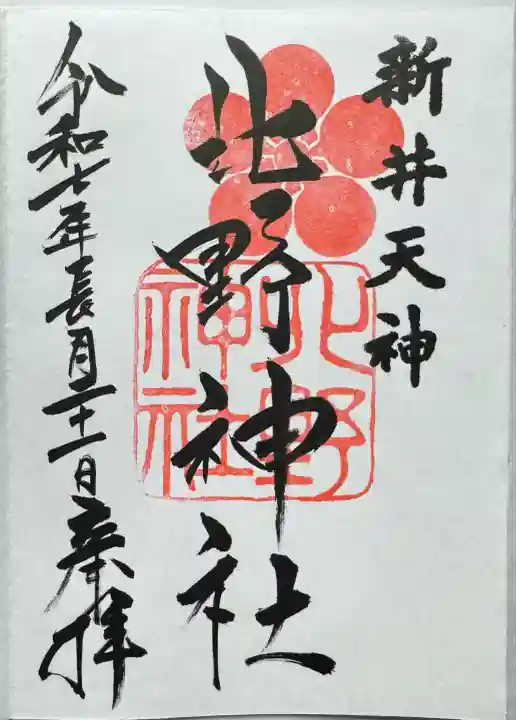 新井天神
北野神社
北野
神社
令和七年長月二十一日奉拝